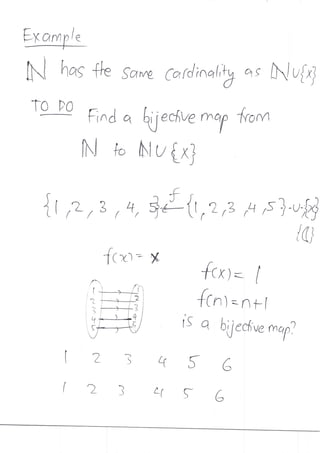 Example
ℕ has the same cardinality as ℕ∪{x}
TO DO Find a bijective map from
ℕ to ℕ∪{x}
{1, 2, 3, 4, 5} ←f {1, 2, 3, 4, 5}∪{x}
f(x) = x
f(x) = 1
f(n) = n+1
is a bijective map?
1 2 3 4 5 6
1 2 3 4 5 6